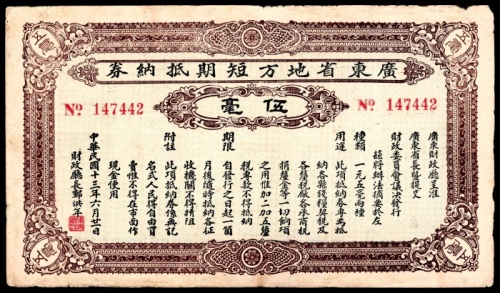 廣東省地方短期抵納券
伍毫
No 147442
No 147442
廣東財政廳呈准
廣東省長暨提交
財政委員會議決發行
茲將辦法摘要於左
種類 一元五毫兩種
用途 此項抵納券專為抵
納各縣錢糧契稅及
各釐稅廠各承商稅
捐釐金等一切餉項
之用惟加二加五釐
稅專款不得抵納
期限 自發行之日起一箇
月後隨時抵納各征
收機關不得揹阻
附註 此項抵納券係無記
名式人民得自由買
賣惟不得在市面作
現金使用
中華民國十三年六月廿一日
財政廳長鄭洪年
伍毫
伍毫
伍毫
伍毫